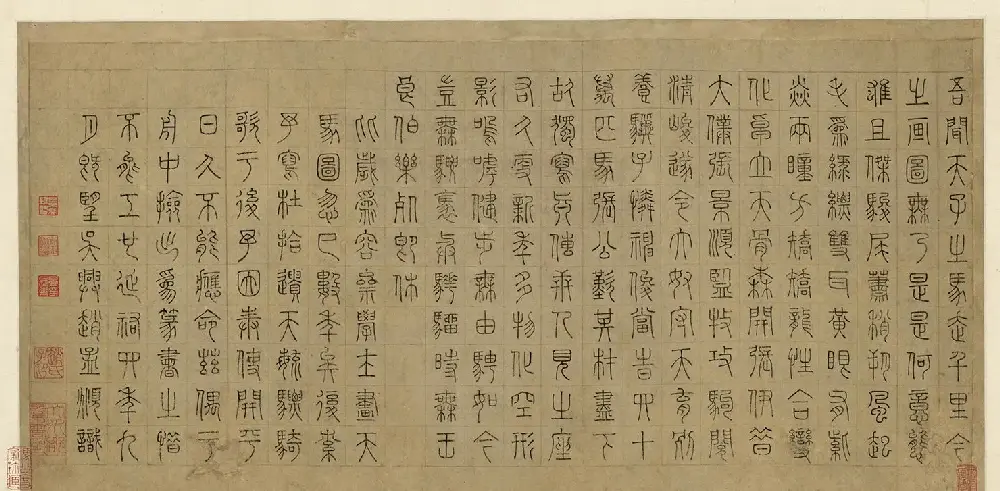 吾聞天子之馬走千里今
之画圖無乃是是何意態
雄且傑駿尾蕭梢朔風起
毛為綠縹雙耳黃眼有紫
焱兩瞳方矯矯龍性合變
化卓立天骨森開張伊昔
大僕張景順監牧攻駒閱
清峻遂令大奴守天育別
養驥子憐神俊當時四十
萬匹馬張公歎其材盡下
故獨寫真傳世人見之座
右久更新年多物化空形
影嗚呼健步無由騁如今
豈無騕褭與驊騮時無王
良伯樂死即休
比歲為容齋學士畫天
馬圖忽已數年矣復索
予寫杜拾遺天毓驃騎
歌于後予因奉使開平
日久不能應命茲偶于
舟中撿此為篆書之惜
不能工也延祐四年九
月既望吳興趙孟頫識